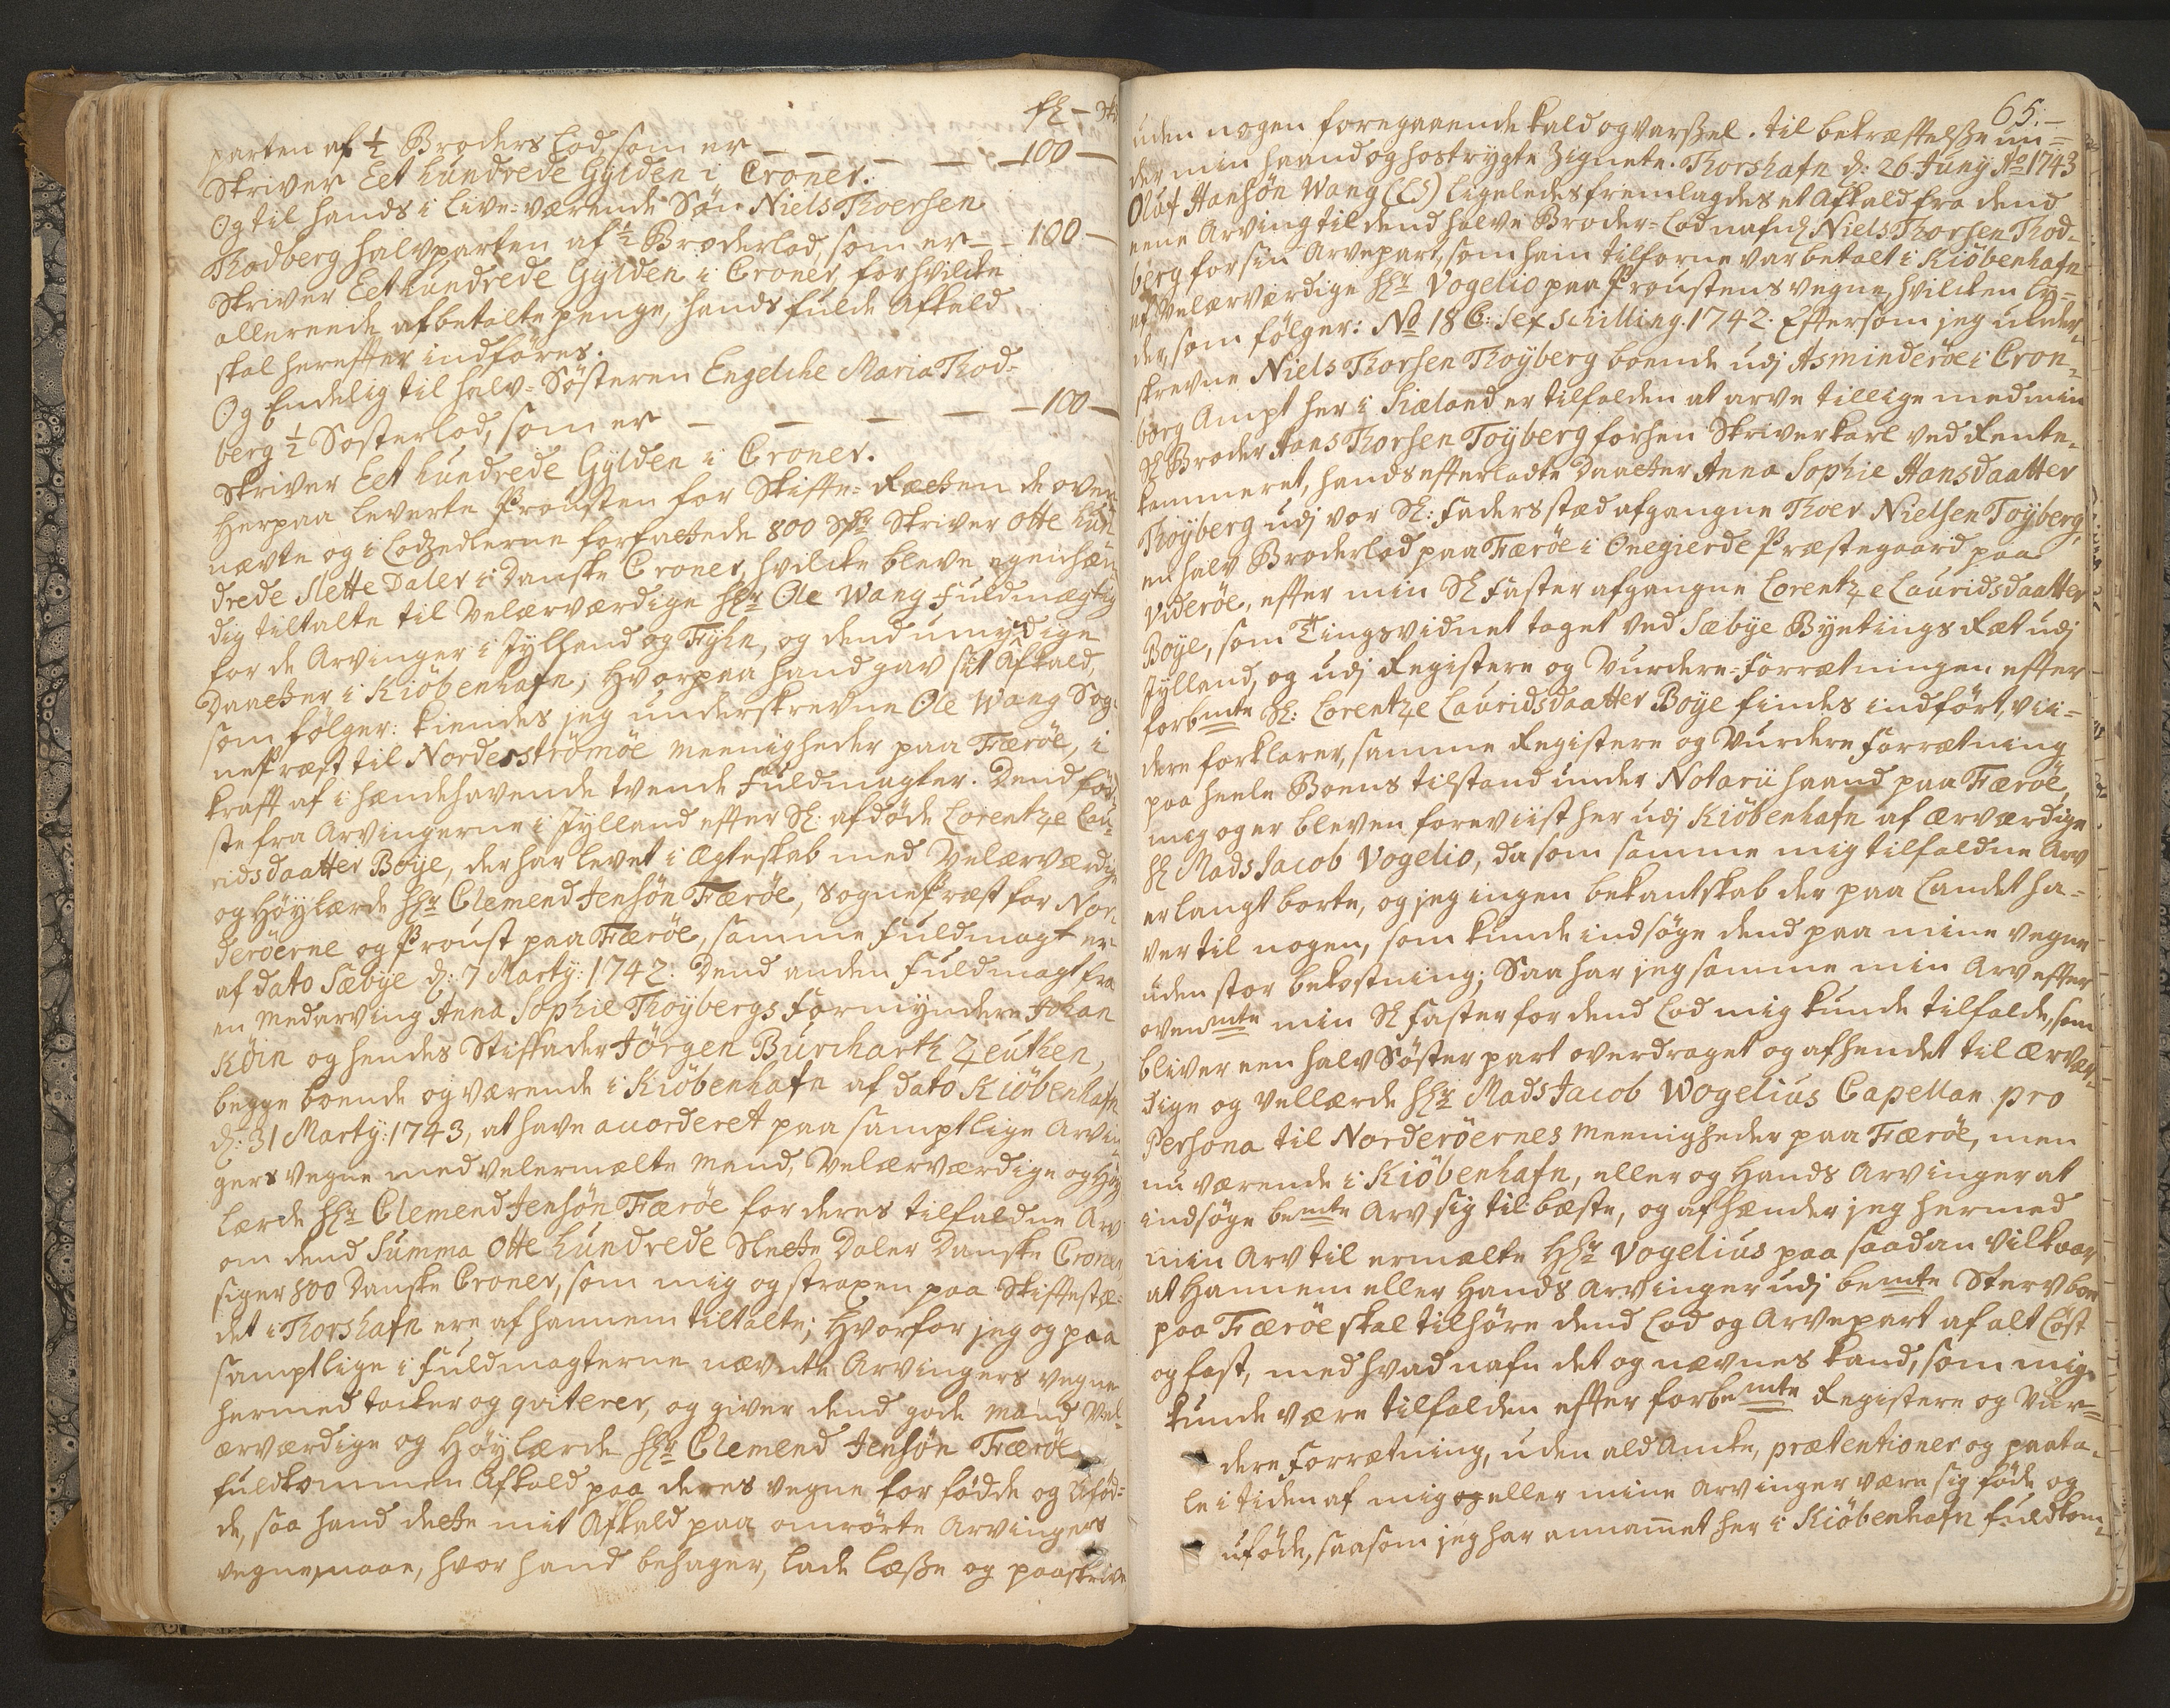 parten af ½ Broders Lod, som er — — — — 100 —
Skriver Eet hundrede Gylden i Croner.
Og til hands i Live-værende Søn Niels Thoersen
Thodberg halvparten af ½ Broderlod, som er — 100 —
Skriver Eet hundrede Gylden i Croner, for hvilcke
allereede afbetalte penge, hands fulde Afkald
skal herefter indføres.
Og Endelig til halv-Søsteren Engelche Maria Thod-
berg ½ Søsterlod, som er — — — — 100 —
Skriver Eet hundrede Gylden i Croner.
Herpaa leverte Prousten for Skifte-Rætten de oven
nævte og i Lodzedlerne forfattede 800 Sldr Skriver Otte hun
drede Slette Daler i Danske Croner, hvilcke bleve egenhæn
dig tiltalte til Velærværdige Hr Ole Wang Fuldmægtig
for de Arvinger i Jylland og Fyhn, og dend umyndige
Daatter i Kiöbenhafn, hvorpaa hand gav sit Afkald,
som følger: kiendes jeg underskrevne Ole Wang Sog-
nePræst til Nordeströmöe meenigheder paa Færöe, i
krafft af i hændehavende tvende Fuldmagter. Dend för-
ste fra Arvingerne i Jylland efter Sl: afdöde Lorentze Lau-
ridsdaatter Boye, der har levet i Ægteskab med Velærværdige
og Höylærde Hr Clemend Jensön Færöe, SognePræst for Nor-
deröerne og Proust paa Færöe, samme Fuldmagt er
af dato Sæbye d: 7 Marty: 1742. Dend anden Fuldmagt fra
en Medarving Anna Sophie Thoybergs Formyndere Johan
Köin og hendes Stiffader Jörgen Burcharth Zeuthen,
begge boende og værende i Kiöbenhafn af dato Kiöbenhafn
d: 31 Marty: 1743, at have accorderet paa samptlige Arvin
gers vegne med velermælte Mand, Velærværdige og Höy
lærde Hr Clemend Jensön Færöe for deres tilfaldne Arv
om dend Summa Otte hundrede Slette Daler Danske Croner
siger 800 Danske Croner, som mig og straxen paa Skiftestæ-
det i Thorshafn ere af hannem tiltalte; Hvorfor jeg og paa
samptlige i Fuldmagterne nævnte Arvingers vegne
hermed tacker og qviterer, og giver dend gode Mand Vel-
ærværdige og Höylærde Hr Clemend Jensön Færöe
fuldkommen Afkald paa deres vegne for födde og Ufød-
de, saa hand dette mit Afkald paa omrörte Arvingers
vegne maae, hvor hand behager, lade læße og paaskrive
65.
uden nogen foregaaende kald og varßel. til bekræftelße un-
der min haand og hostrygte Zignete. Thorshafn d: 26 Juny Ao 1743
Oluf Hansön Wang (LS) Ligeledes fremlagdes et Afkald fra dend
eene Arving til dend halve Broder-Lod nafnl Niels Thorsen Thod-
berg for sin Arvepart, som ham tilforne var betalt i Kiöbenhafn
af Velærværdige Hr Vogelio paa Proustens vegne, hvilcken ly-
der, som følger: No 18 C: sex schilling. 1742. Eftersom jeg under-
skrevne Niels Thorsen Thoyberg boende udj Asminderöe i Cron-
borg Ampt her i Siæland er tilfalden at arve tillige med min
Sl Broder Hans Thorsen Toyberg forhen Skriverkarl ved Rente-
kammeret, hands efterladte Daatter Anna Sophie Hansdaatter
Thoyberg udj vor Sl: Faders stæd afgangne Thoer Nielsen Toyberg,
en halv Broderlod paa Færöe i Onegierde Præstegaard paa
Videröe, efter min Sl Faster afgangne Lorentze Lauridsdaatter
Boye, som Tingsvidnet taget ved Sæbye Byetings Ræt udj
Jylland, og udj Registere og Vurdere-Forrætningen efter
forbmte Sl: Lorentze Lauridsdaatter Boye findes indfört, vii-
dere forklarer, samme Registere og Vurdere Forrætning
paa heele Boens tilstand under Notarii haand paa Færöe,
mig og er bleven foreviist her udj Kiöbenhafn af Ærværdige
Hr Mads Jacob Vogelio, da som samme mig tilfaldne Arv
er langt borte, og jeg ingen bekantskab der paa Landet ha-
ver til nogen, som kunde indsöge dend paa mine vegne
uden stor bekostning; Saa har jeg samme min Arv efter
ovenmte min Sl Faster for dend Lod mig kunde tilfalde, som
bliver een halv Söster part overdraget og afhendet til Ærvær-
dige og Vellærde Hr Mads Jacob Wogelius Capellan pro
Persona til Norderöernes Meenigheder paa Færöe, men
nu værende i Kiöbenhafn, eller og Hands Arvinger at
indsöge bemte Arv sig til bæste, og afhænder jeg hermed
min Arv til ermælte Hr Vogelius paa saadan Vilkaar
at Hannem eller Hands Arvinger udj bemte Stervboe
paa Færöe skal tilhöre dend Lod og Arvepart af alt Löst
og fast, med hvad nafn det og nævnes kand, som mig
kunde være tilfalden efter forbemte Registere og Vur-
dere Forrætning, uden ald Ancke, prætentioner og paata-
le i tiden af mig og eller mine Arvinger være sig föde og
uföde, saasom jeg har annammet her i Kiöbenhafn fuldkom-